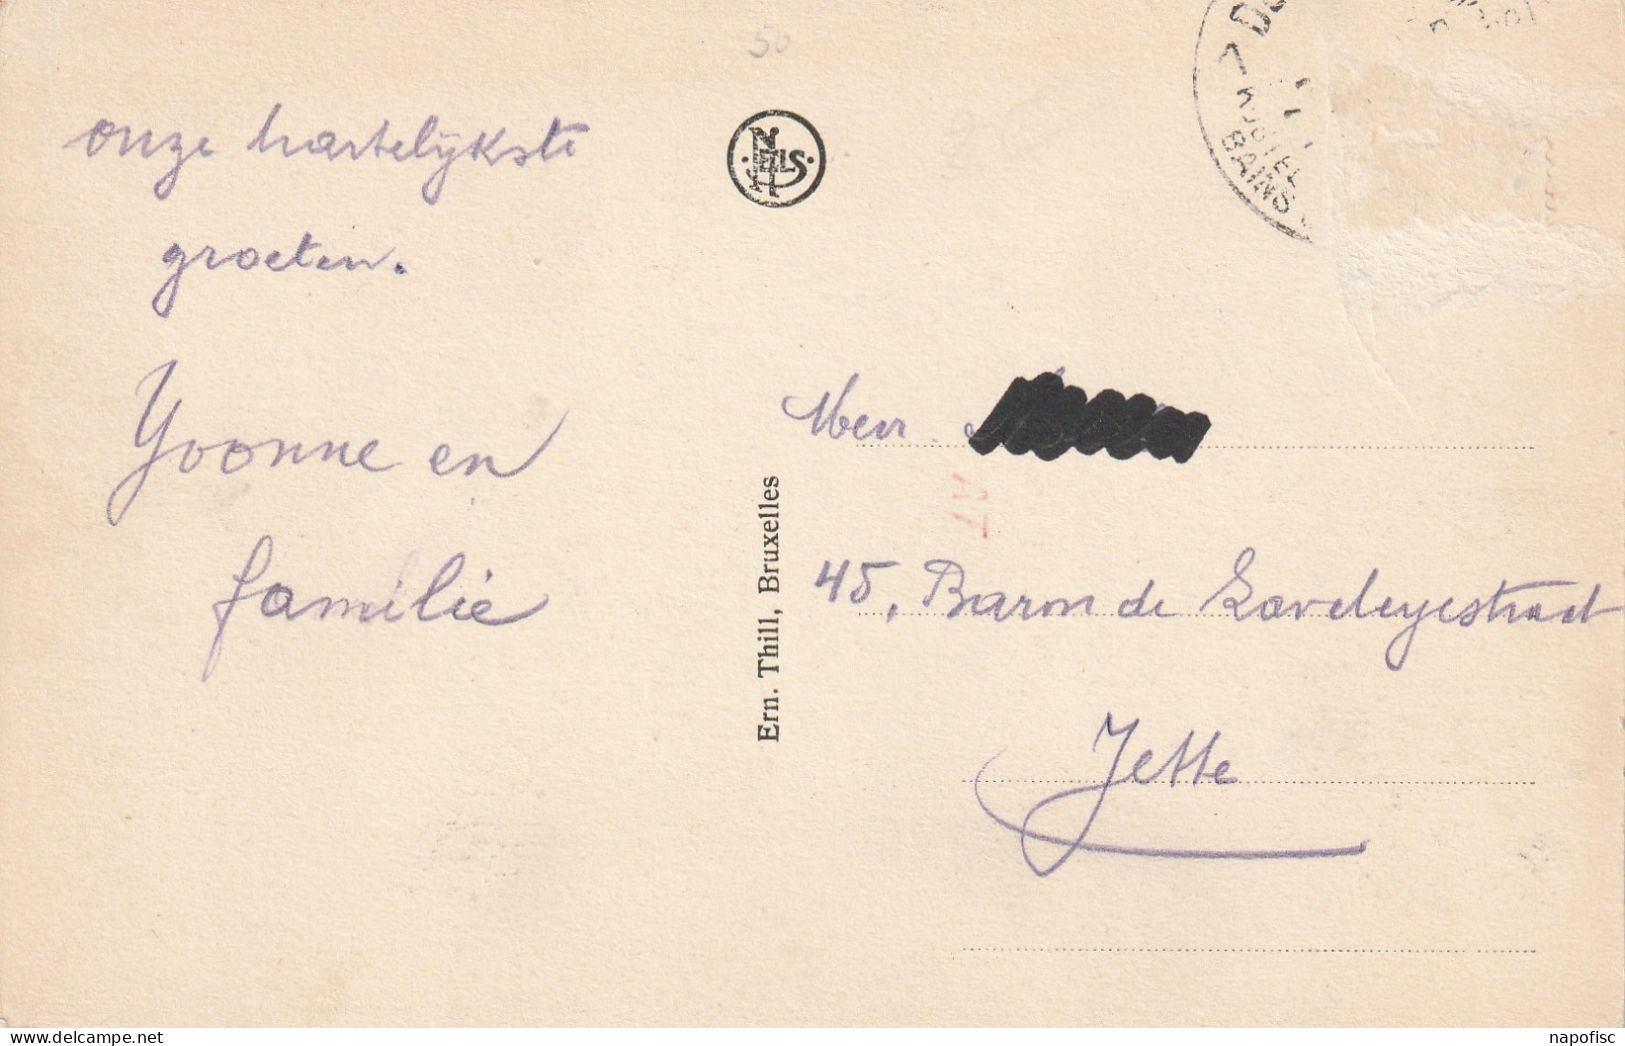 50
onze hartelijkste
groeten.
Yvonne en
familie
NELS
Ern. Thill, Bruxelles
BAINS
Mevr.
A7
45, Baron de Laveleyestraat
Jette
delcampe.net
napofisc